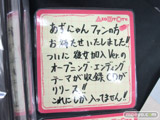 あずにゃんファンの方
お待たせいたしました!!
ついに彼女加入Ver.の
オープニング・エンディング
テーマが収録CDが
リリース!!
これにしか入ってません!